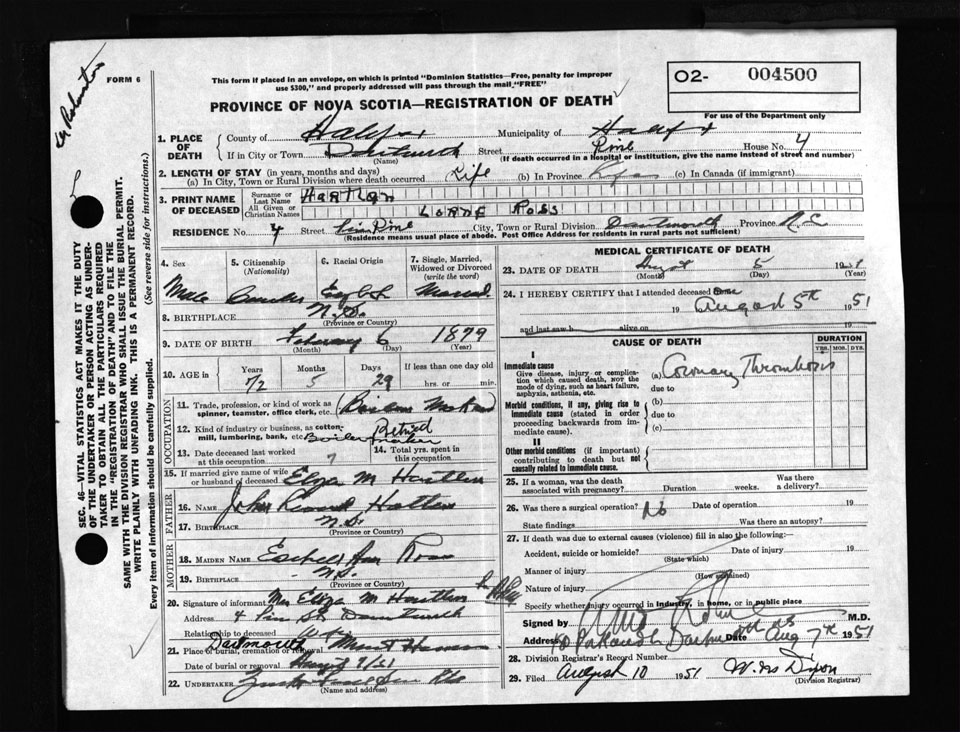 FORM 6
This form if placed in an envelope, on which is printed "Dominion Statistics—Free, penalty for improper
use $300," and properly addressed will pass through the mail "FREE"
O2- 004500
For use of the Department only
PROVINCE OF NOVA SCOTIA—REGISTRATION OF DEATH
1. PLACE OF DEATH
County of Halifax Municipality of Halifax
If in City or Town Dartmouth Street Pine House No. 4
(Name) (If death occurred in a Hospital or institution, give the name instead of street and number)
2. LENGTH OF STAY (in years, months and days)
(a) In City, Town or Rural Division where death occurred Life (b) In Province Life (c) In Canada (if immigrant)
3. PRINT NAME OF DECEASED
Surname or Last Name Hartlan
All Given or Christian Names LORNE ROSS
RESIDENCE No. 4 Street Pine City, Town or Rural Division Dartmouth Province N.S.
(Residence means usual place of abode. Post Office Address for residents in rural parts not sufficient)
4. Sex
Male
5. Citizenship
(Nationality)
6. Racial Origin
7. Single, Married, Widowed or Divorced
(write the word)
Married
8. BIRTHPLACE N.S.
(Province or Country)
9. DATE OF BIRTH February 6 1879
(Month) (Day) (Year)
10. AGE in Years Months Days If less than one day old
72 5 29 hrs. or min.
OCCUPATION
11. Trade, profession, or kind of work as
spinner, teamster, office clerk, etc. Boiler Maker
12. Kind of industry or business, as cotton-
mill, lumbering, bank, etc. Retired
Boilermaker
13. Date deceased last worked
at this occupation ?
14. Total yrs. spent in
this occupation
15. If married give name of wife
or husband of deceased Eliza M Hartlan
FATHER
16. Name John
17. Birthplace N.S.
(Province or Country)
MOTHER
18. Maiden Name
19. Birthplace N.S.
(Province or Country)
20. Signature of informant Mrs Eliza M Hartlan
Address 4 Pine St Dartmouth
Relationship to deceased Wife
21. Place of burial, cremation or removal Dartmouth Mount Hermon
Date of burial or removal
22. UNDERTAKER
(Name and address)
MEDICAL CERTIFICATE OF DEATH
23. DATE OF DEATH August 5 1951
(Month) (Day) (Year)
24. I HEREBY CERTIFY that I attended deceased
19 August 5th 1951
and last saw h alive on 19
CAUSE OF DEATH
DURATION
YRS. MOS. DYS.
I
Immediate cause
Give disease, injury or complica-
tion which caused death, NOT the
mode of dying, such as heart failure,
asphyxia, asthenia, etc.
(a) Coronary Thrombosis
due to
Morbid conditions, if any, giving rise to
immediate cause (stated in order
proceeding backwards from im-
mediate cause).
(b)
due to
(c)
II
Other morbid conditions (if important)
contributing to death but not
causally related to immediate cause.
25. If a woman, was the death
associated with pregnancy? Duration weeks. Was there
a delivery?
26. Was there a surgical operation? No Date of operation 19
State findings Was there an autopsy?
27. If death was due to external causes (violence) fill in also the following:—
Accident, suicide or homicide? Date of injury 19
(State which)
Manner of injury
(How sustained)
Nature of injury
Specify whether injury occurred in industry, in home, or in public place
Signed by M.D.
Address Date Aug 7th 1951
28. Division Registrar's Record Number
29. Filed August 10 1951
(Division Registrar)
SEC. 46—VITAL STATISTICS ACT MAKES IT THE DUTY
OF THE UNDERTAKER OR PERSON ACTING AS UNDER-
TAKER TO OBTAIN ALL THE PARTICULARS REQUIRED
IN THE "REGISTRATION OF DEATH" AND TO FILE THE
SAME WITH THE DIVISION REGISTRAR WHO SHALL ISSUE THE BURIAL PERMIT.
WRITE PLAINLY WITH UNFADING INK. THIS IS A PERMANENT RECORD.
Every item of information should be carefully supplied. (See reverse side for instructions.)